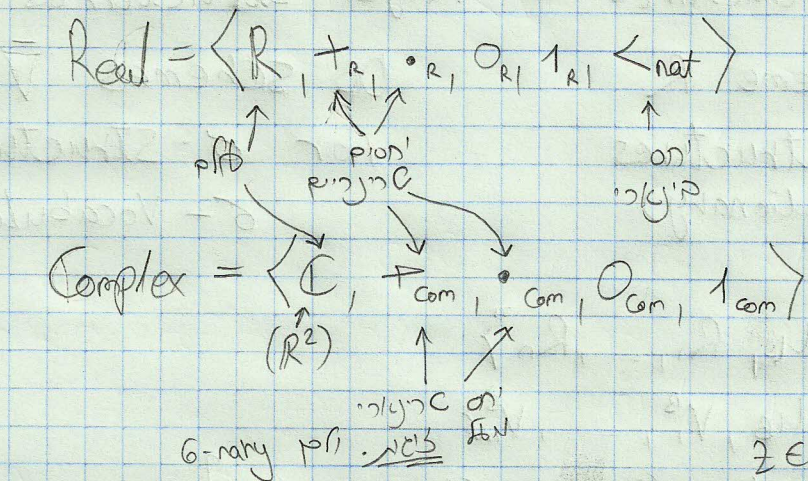 = Real = ⟨ℝ, +R, ·R, 0R, 1R, <nat⟩
עולם
יחסים
טרינריים
יחס
בינארי
Complex = ⟨ℂ, +com, ·com, 0com, 1com⟩
(ℝ²)
יחס טרינארי
מעל
זוגות. ולכן 6-nary
Z ∈